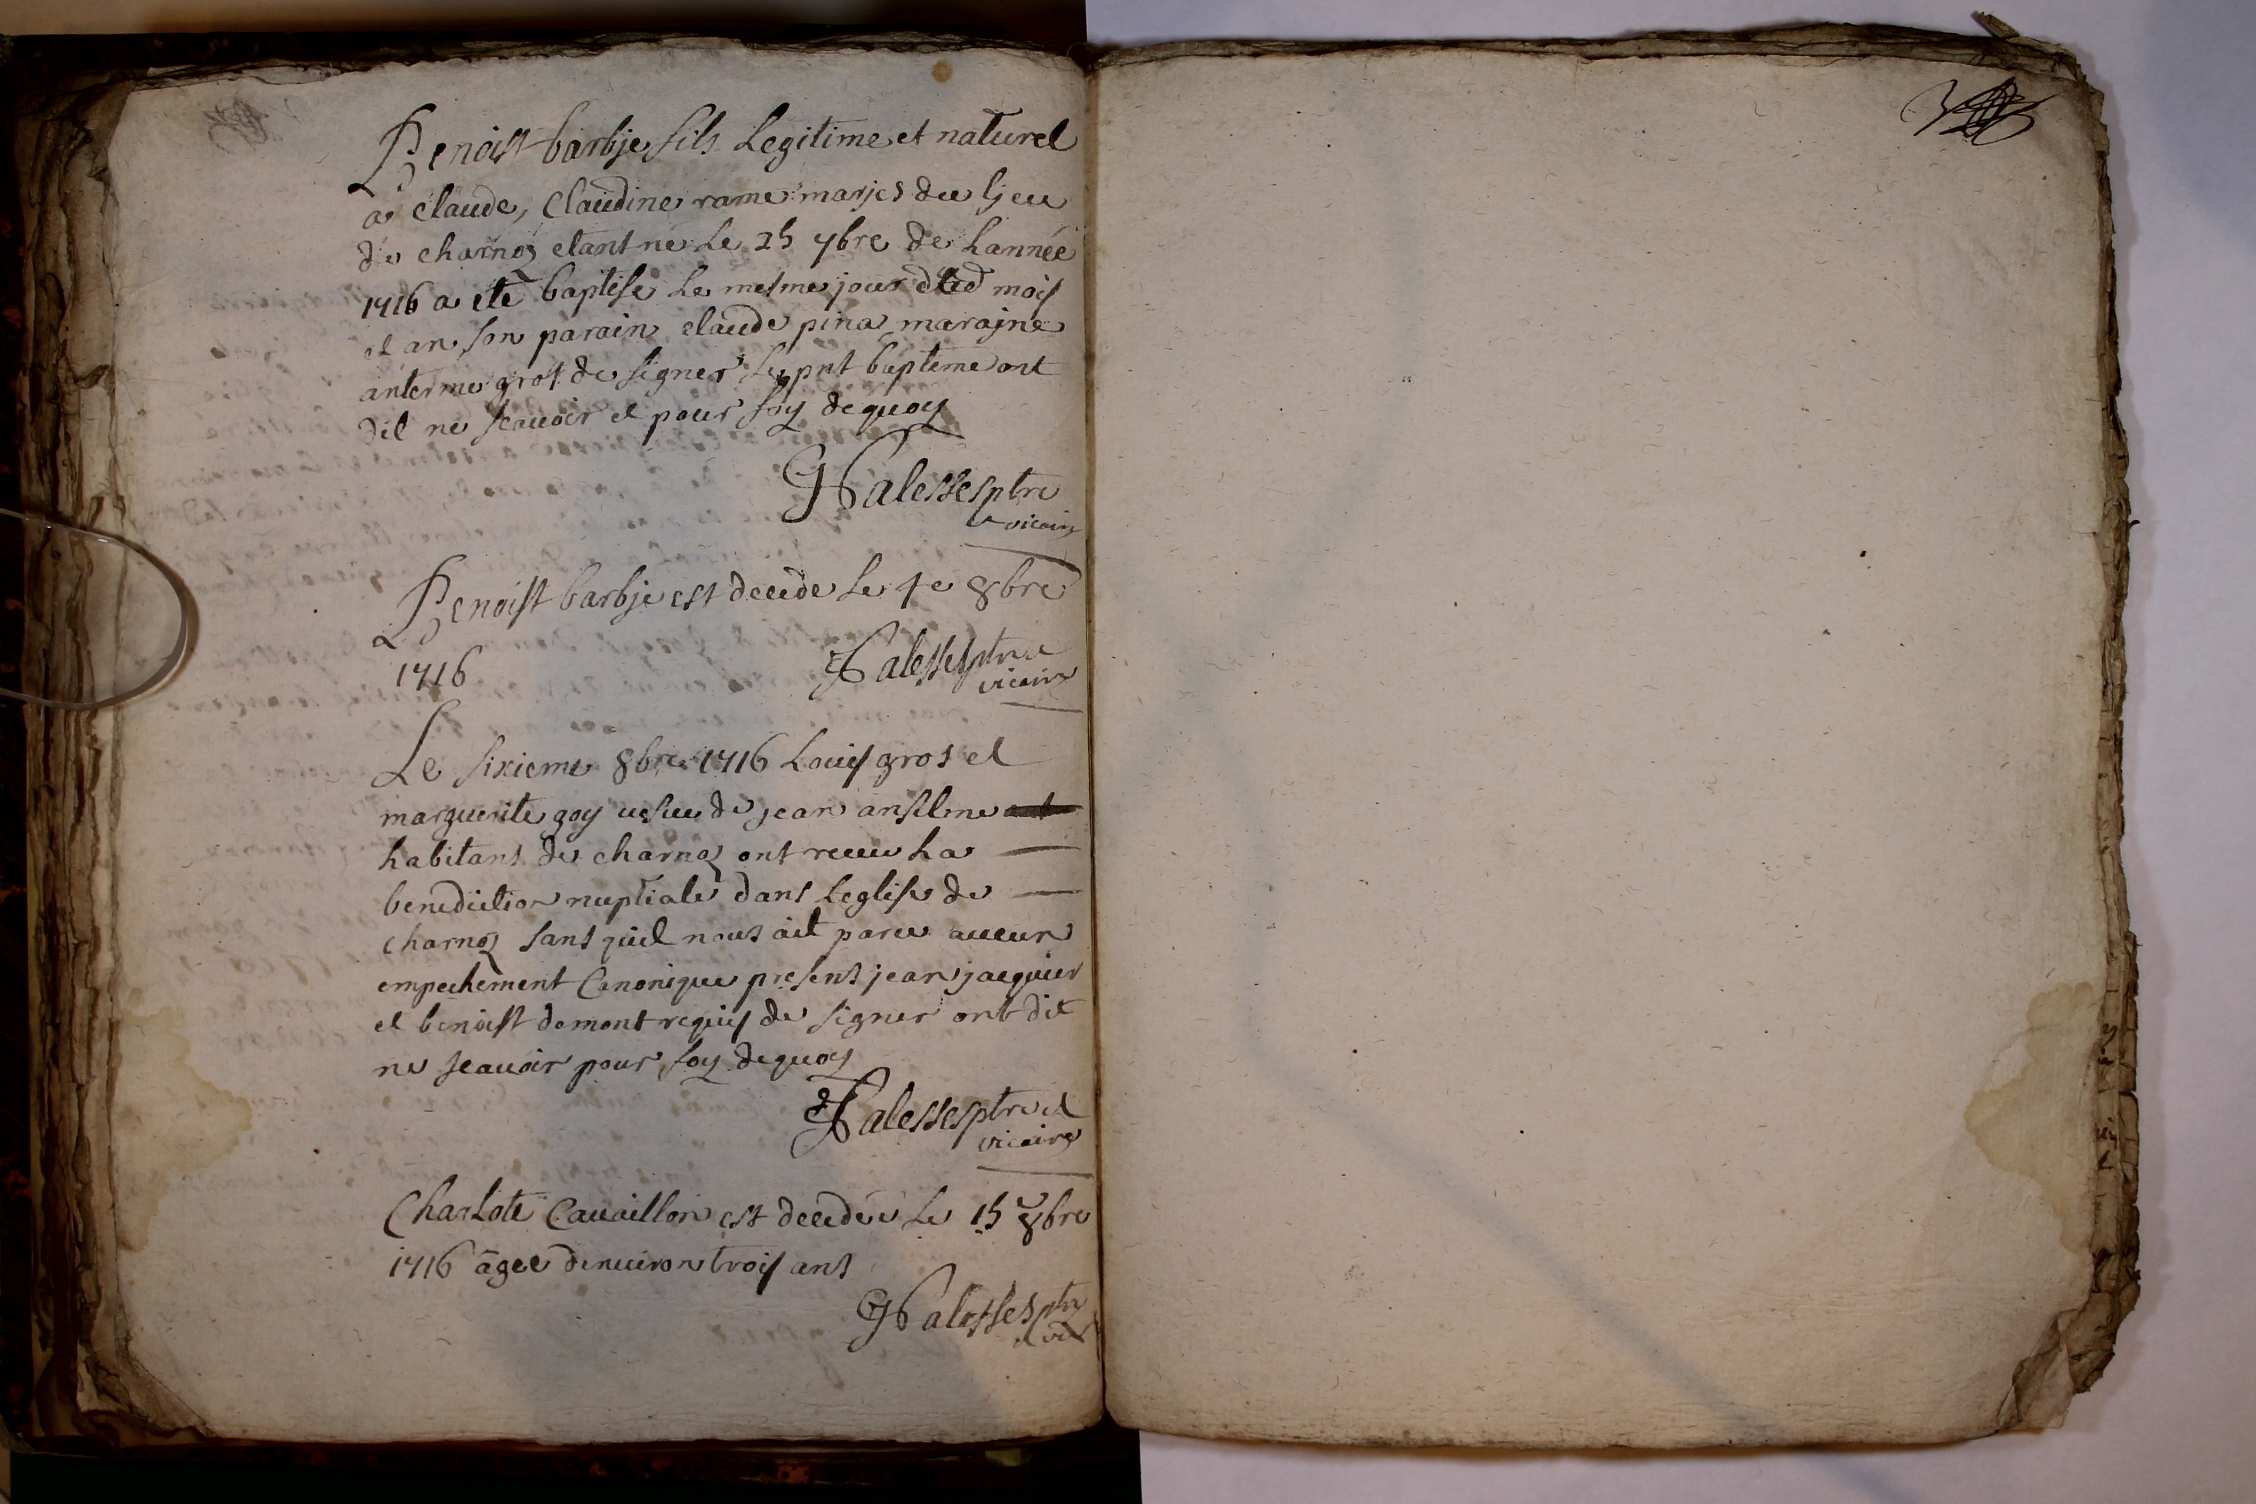 Benoist barbje fils Legitime et naturel
a claude, Claudine rame marjes du ljeu
de charnoz etant né Le 25 7bre de Lannée
1716 a eté baptise Le mesme jour dud mois
et an son parain claude pina marajne
anterme gros de signer Le pnt bapteme ont
dit ne scauoir et pour foy dequoy
Halesses ptre
vicaire
Benoist barbje est decede Le 4e 8bre
1716
Halesses ptre
vicaire
Le sixieme 8bre 1716 Louis gros et
marguerite goy uesue de jean anselme
habitans de charnoz ont receu La
benediction nuptiale dans Leglise de
charnoz sans quil nous ait paru aucun
empechement Canonique presens jean jacquier
et benoist demont requis de signer ont dit
ne scauoir pour foy dequoy
Halesses ptre et
vicaire
Charlote Cauaillon est decedée Le 15 8bre
1716 agee denuiron trois ans
Halesses ptre